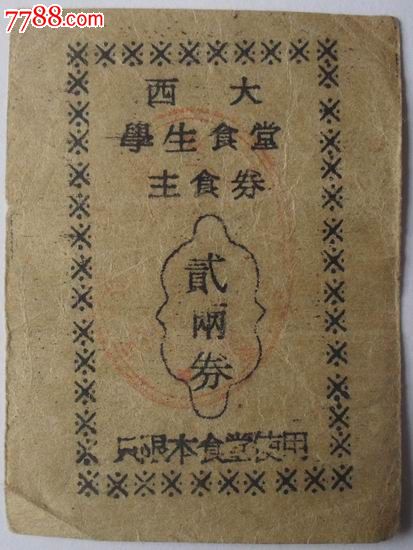 7788.com
西大
學生食堂
主食券
貳
兩
券
只限本食堂使用